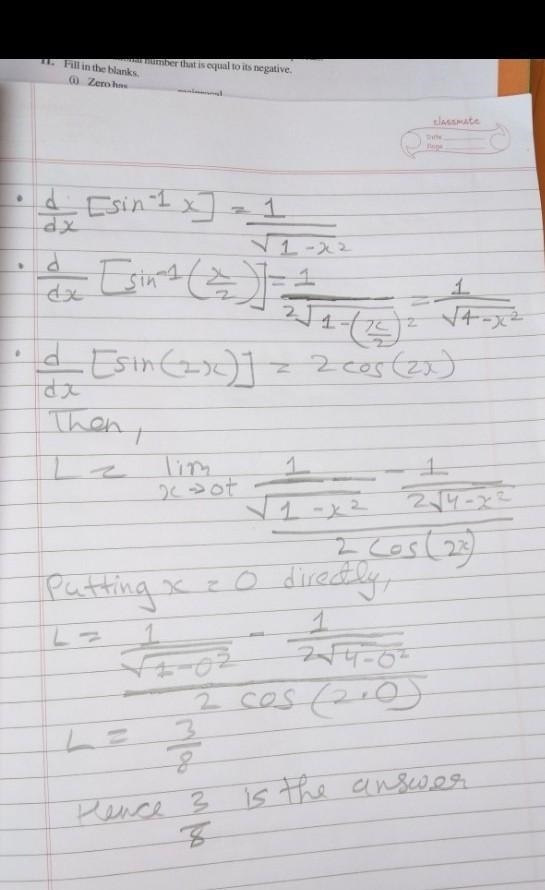 11. Fill in the blanks.
number that is equal to its negative.
(i) Zero has
classmate
Date
Page
• d/dx [sin⁻¹ x] = 1/√(1-x²)
• d/dx [sin⁻¹ (x/2)] = 1/(2√(1-(x/2)²)) = 1/√(4-x²)
• d/dx [sin(2x)] = 2 cos(2x)
Then,
L = lim x→0+ (1/√(1-x²) - 1/(2√(4-x²)))/(2 cos(2x))
Putting x = 0 directly,
L = (1/√(1-0²) - 1/(2√(4-0²)))/(2 cos(2.0))
L = 3/8
Hence 3/8 is the answer